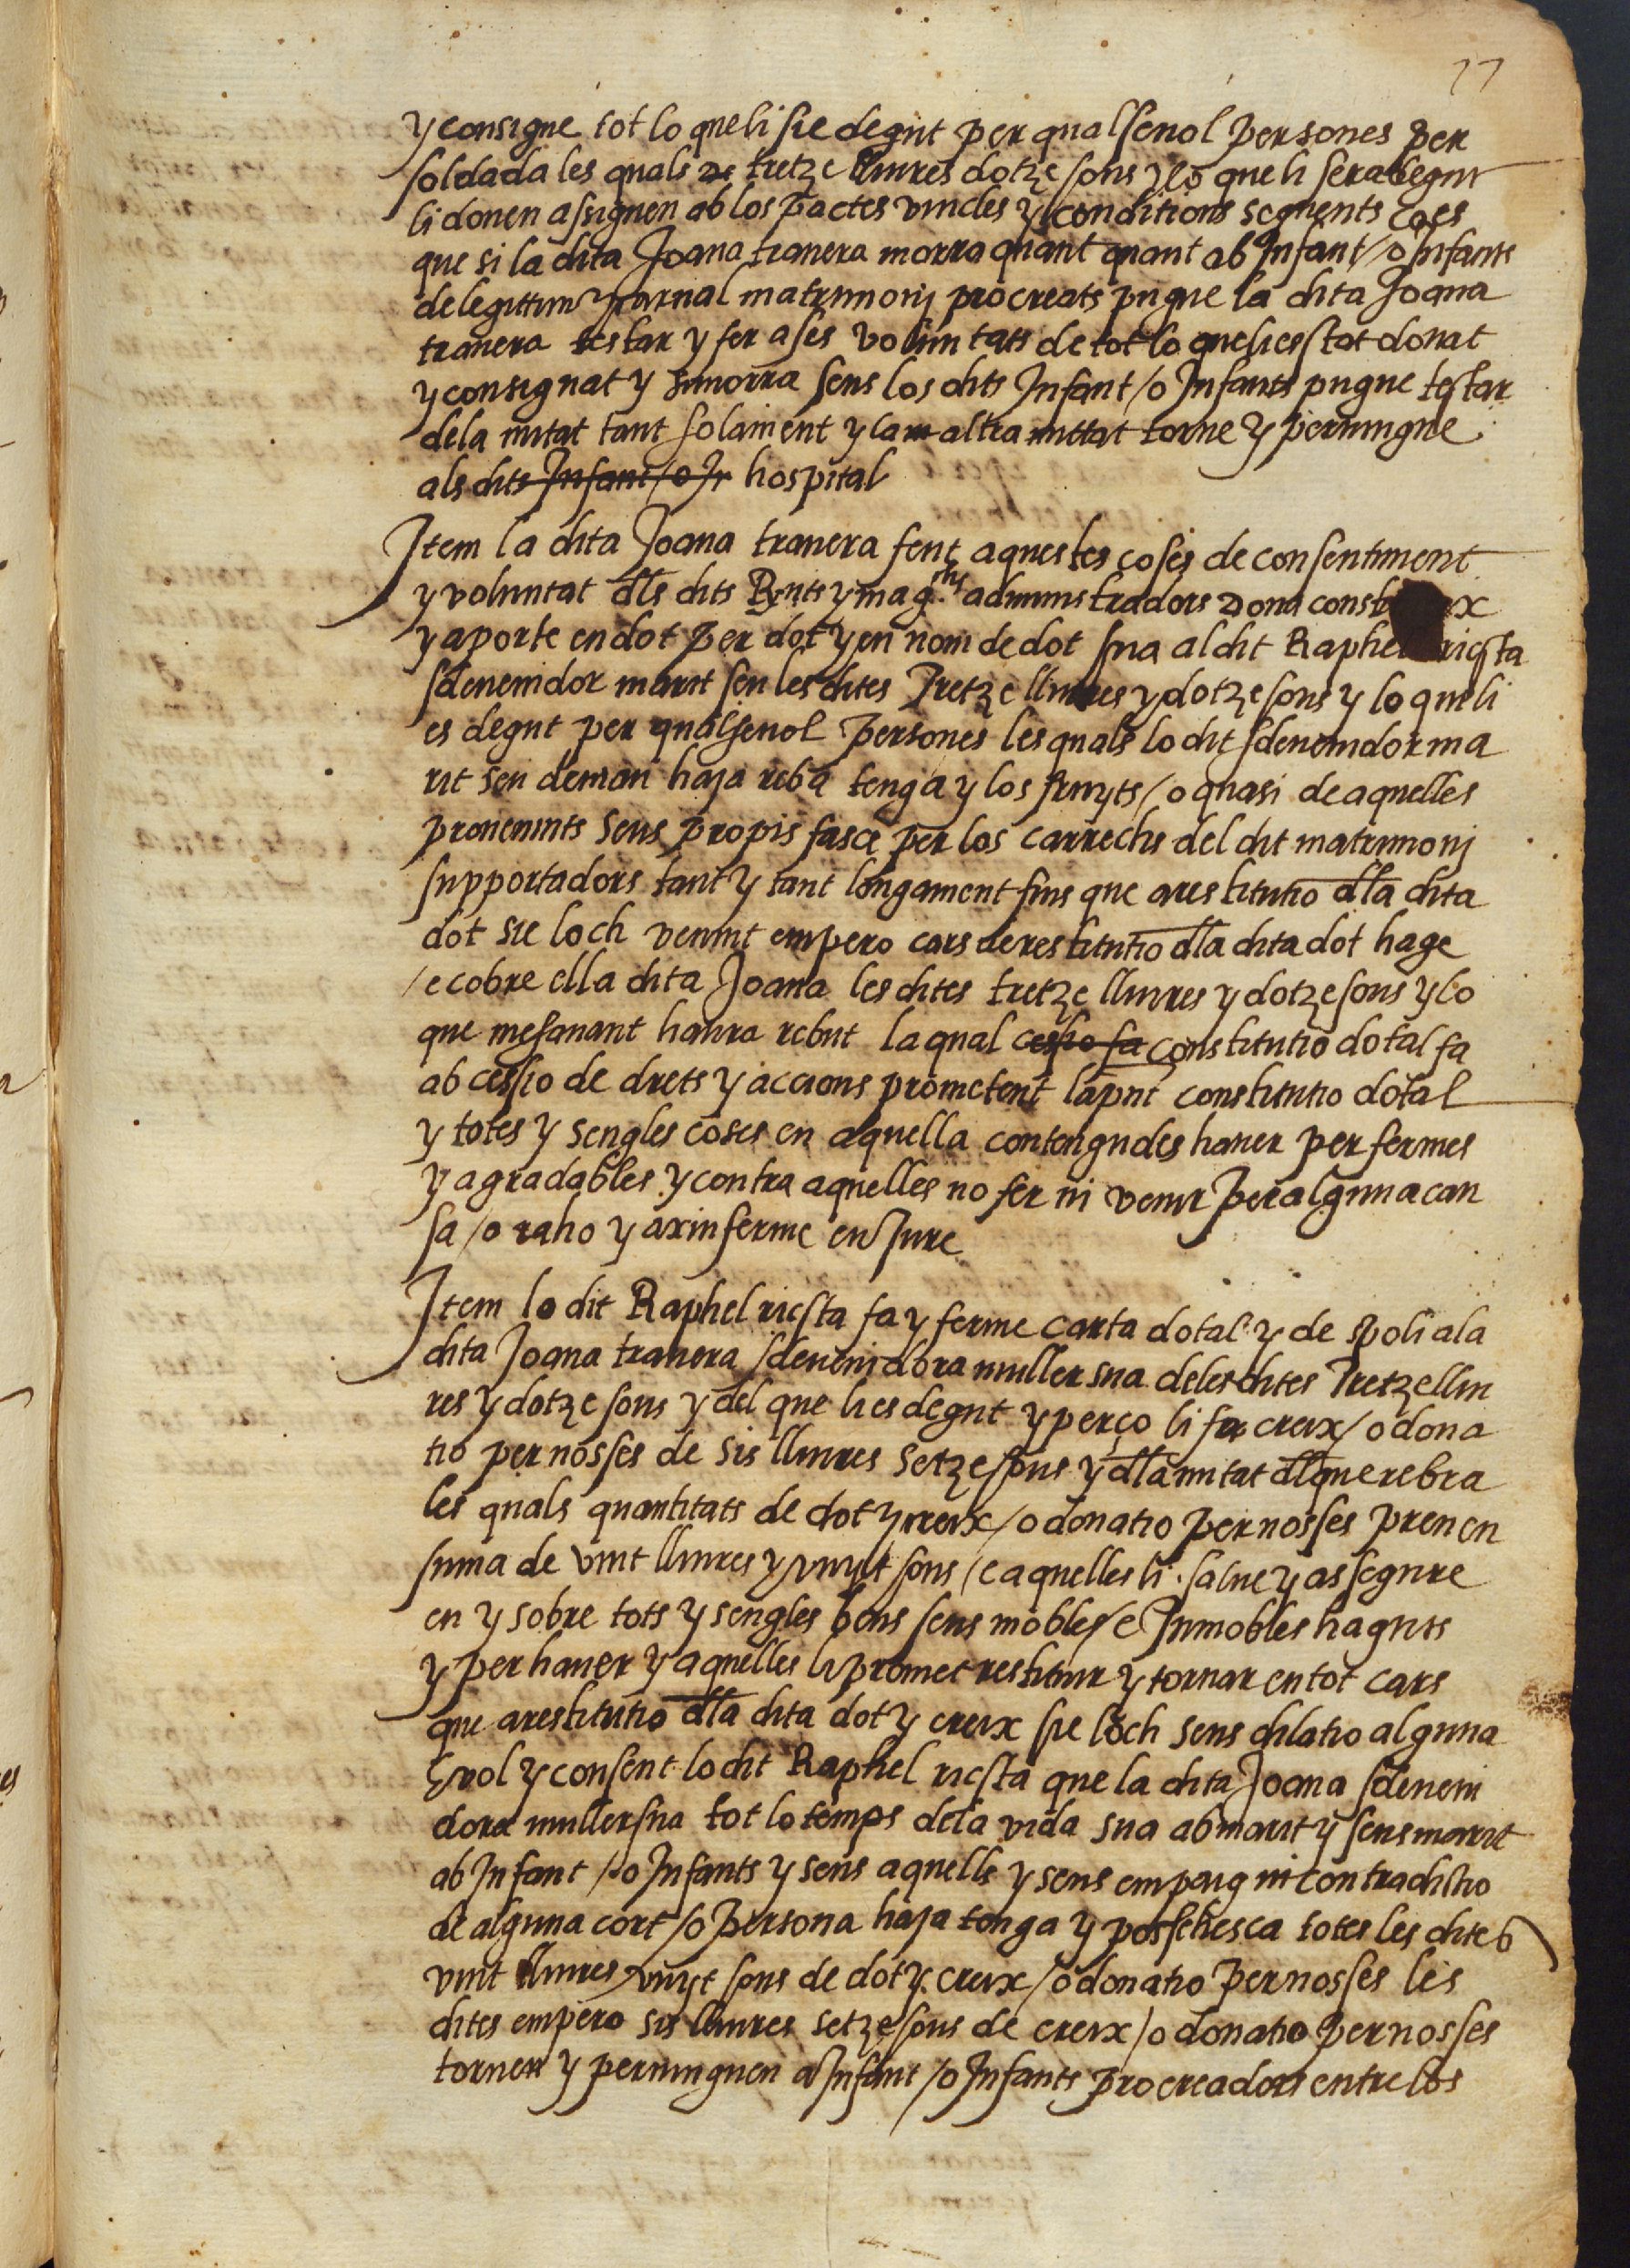 77
y consigne tot lo que li sie degut per qualsevol persones per
soldada les quals de tretze lliures dotze sous y lo que li sera degut
li donen assignen ab los pactes vincles y conditions seguents ço es
que si la dita Joana travera morra quant quant ab Infant /o Infants
de legittim y carnal matrimonj procreats pugue la dita Joana
travera testar y fer a ses voluntats de tot lo que li es stat donat
y consignat y si morra sens los dits Infant /o Infants pugue testar
de la mitat tant solament y la altra mittat torne y pervingue
als dits Infant /o In hospital
Item la dita Joana travera fent aquestes coses de consentiment
y voluntat dls dits Rnts y mag.chs administradors dona const ex
y aporte en dot per dot y en nom de dot sua al dit Raphel riesta
sdevenidor marit seu les dites Tretze lliures y dotze sous y lo que li
es degut per qualsevol persones les quals lo dit sdevenidor ma
rit seu deman haja reba tenga y los fruyts /o quasi de aquelles
provenints seus propis fasce per los carrechs del dit matrimonj
supportadors tant y tant longament fins que a restitutio dla dita
dot sie loch venint empero cars de restitutio dla dita dot hage
/e cobre ella dita Joana les dites tretze lliures y dotze sous y lo
que mesavant haura rebut la qual cessio fa constitutio dotal fa
ab cessio de drets y accions prometent la pnt constitutio dotal
y totes y sengles coses en aquella contengudes haver per fermes
y agradables y contra aquelles no fer ni venir per alguna cau
sa /o raho y axi n ferme en Jure
Item lo dit Raphel riesta fa y ferme carta dotal y de spoli a la
dita Joana travera sdevenidora muller sua de les dites Tretze lliu
res y dotze sous y del que li es degut y perço li fa creix /o dona
tio per nosses de sis lliures setze sous y dla mitat dl que rebra
les quals quantitats de dot y creix /o donatio per nosses prenen
suma de vint lliures y vuyt sous /e aquelles li salve y assegure
en y sobre tots y sengles bens seus mobles /e Inmobles haguts
y per haver y aquelles li promet restituir y tornar en tot cars
que a restitutio dla dita dot y creix sie loch sens dilatio alguna
E vol y consent lo dit Raphel riesta que la dita Joana sdeveni
dora muller sua tot lo temps de la vida sua ab marit y sens marit
ab Infant /o Infants y sens aquells y sens empaig ni contradictio
de alguna cort /o persona haja tenga y possehesca totes les dites
vint lliures vuyt sous de dot y creix /o donatio per nosses les
dites empero sis lliures setze sous de creix /o donatio per nosses
tornen y pervinguen a Infant /o Infants procreadors entre los